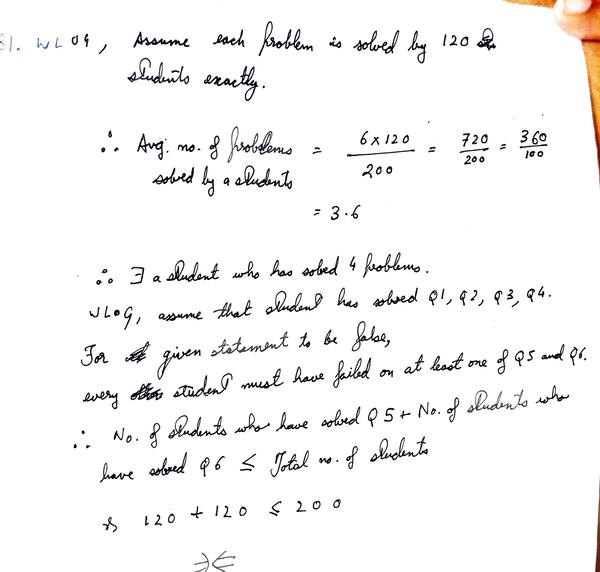 31. WLOG, Assume each problem is solved by 120
students exactly.
∴ Avg. no. of problems = 6 x 120 / 200 = 720 / 200 = 360 / 100
solved by a students
= 3.6
∴ ∃ a student who has solved 4 problems.
WLOG, assume that student has solved Q1, Q2, Q3, Q4.
For given statement to be false,
every student must have failed on at least one of Q5 and Q6.
∴ No. of students who have solved Q5 + No. of students who
have solved Q6 ≤ Total no. of students
120 + 120 ≤ 200